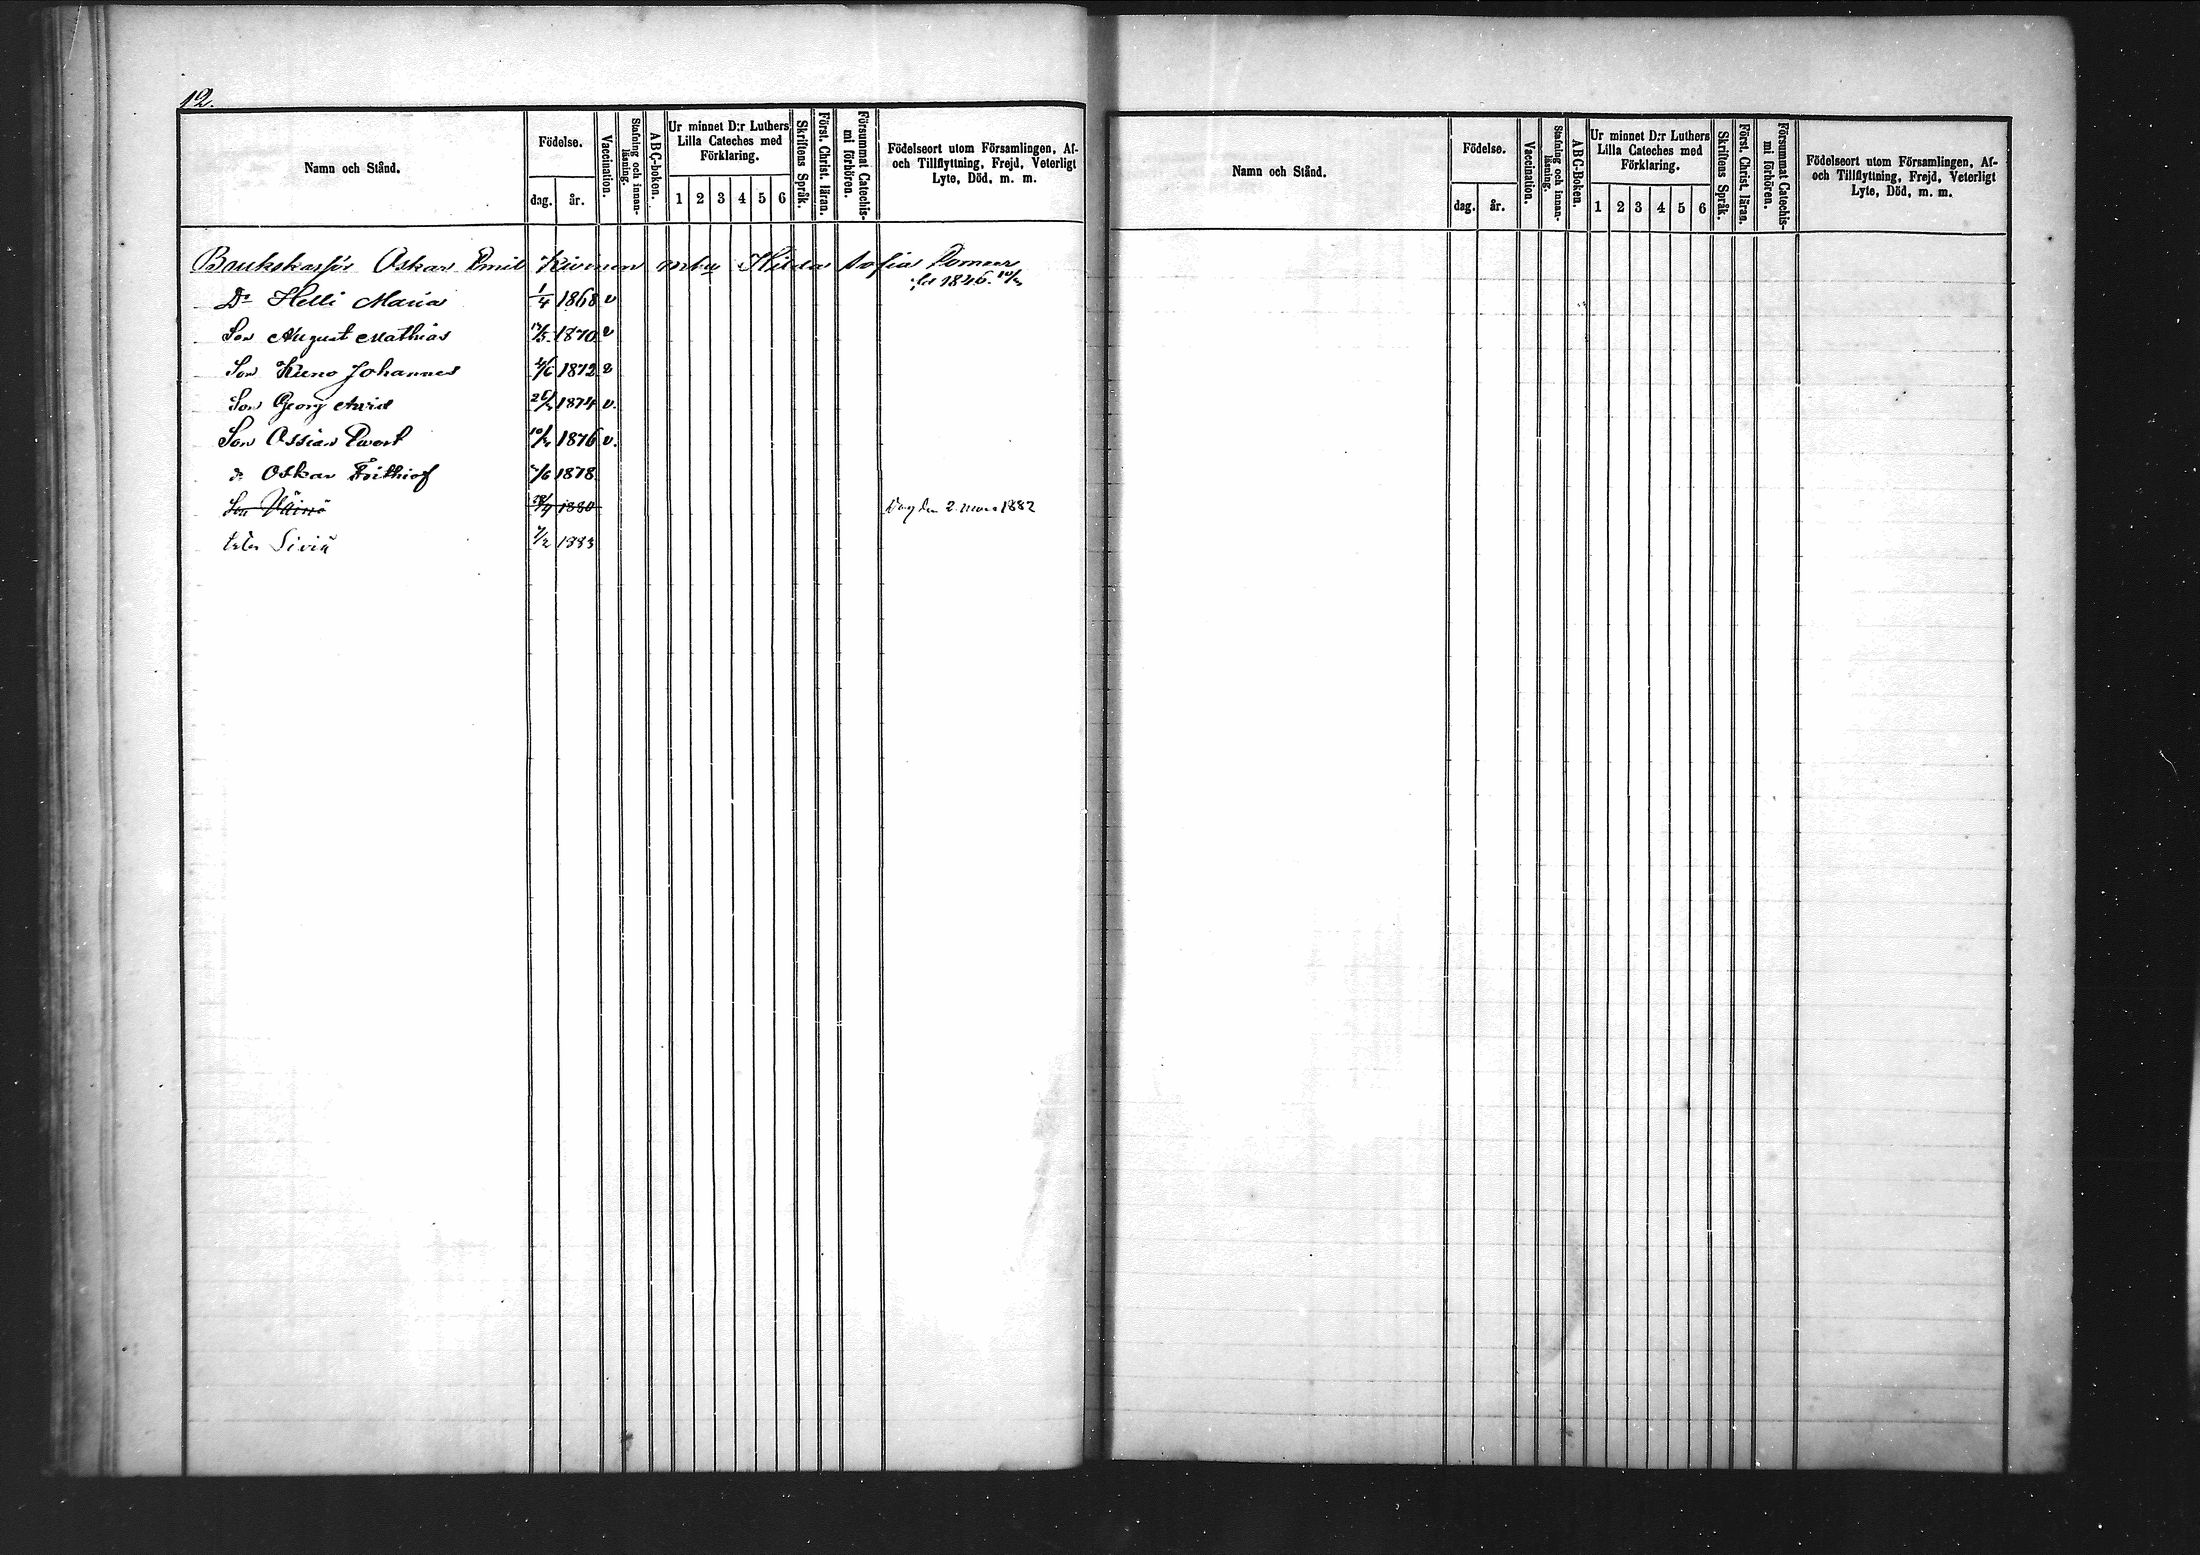 12.
Namn och Stånd.
Födelse.
dag. år.
Vaccination.
Stafning och innan-
läsning.
ABC-boken.
Ur minnet D:r Luthers
Lilla Cateches med
Förklaring.
1 2 3 4 5 6
Skriftens Språk.
Först. Christ. läran.
Försummat Catechis-
mi förhören.
Födelseort utom Församlingen, Af-
och Tillflyttning, Frejd, Veterligt
Lyte, Död, m. m.
Oskar Emil Kivinen Hilda Sofia
1846
Dr Helli Maria 1/4 1868 v
Son August Mathias 1870 v
Son Kuno Johannes 1872 v
Son Georg Arvid 1874 v.
Son Ossian Evert 10/ 1876 v.
Oskar Frithiof 1878
Son Väinö 1880 Dog den 2 mars 1882
Siviä 1883
Namn och Stånd.
Födelse.
dag. år.
Vaccination.
Stafning och innan-
läsning.
ABC-Boken.
Ur minnet D:r Luthers
Lilla Cateches med
Förklaring.
1 2 3 4 5 6
Skriftens Språk.
Först. Christ. läran.
Försummat Catechis-
mi förhören.
Födelseort utom Församlingen, Af-
och Tillflyttning, Frejd, Veterligt
Lyte, Död, m. m.